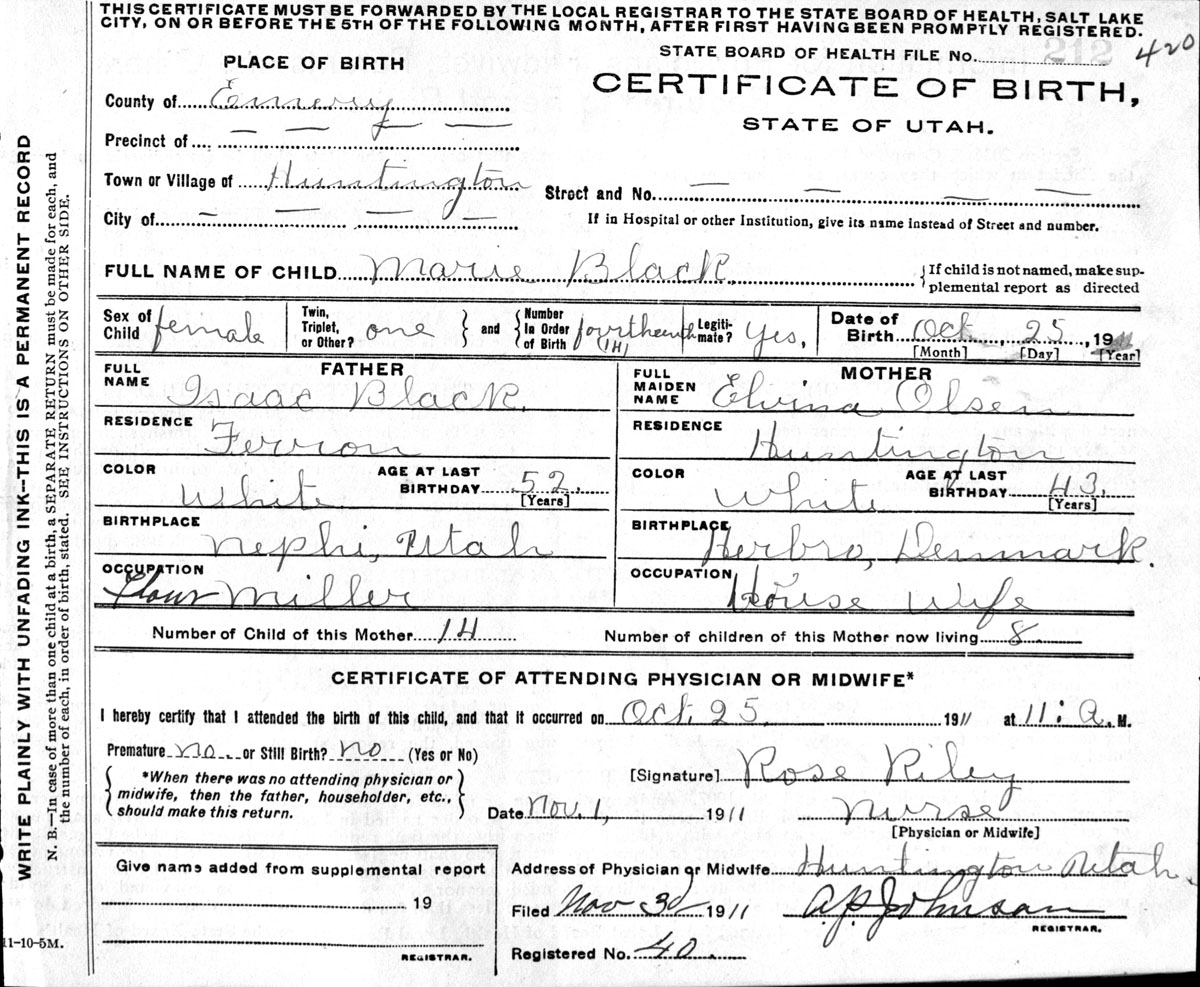 THIS CERTIFICATE MUST BE FORWARDED BY THE LOCAL REGISTRAR TO THE STATE BOARD OF HEALTH, SALT LAKE
CITY, ON OR BEFORE THE 5TH OF THE FOLLOWING MONTH, AFTER FIRST HAVING BEEN PROMPTLY REGISTERED.
STATE BOARD OF HEALTH FILE No. 212 420
PLACE OF BIRTH
CERTIFICATE OF BIRTH,
STATE OF UTAH.
County of Emery
Precinct of — — — —
Town or Village of Huntington
Street and No. — — — —
City of — — — —
If in Hospital or other Institution, give its name instead of Street and number.
FULL NAME OF CHILD Marie Black.
{If child is not named, make sup-
plemental report as directed
Sex of Child female
Twin, Triplet, or Other? one
and
Number In Order of Birth fourtheenth (14)
Legiti-mate? Yes,
Date of Birth Oct., 25, 1911
[Month] [Day] [Year]
FATHER
FULL NAME Isaac Black.
RESIDENCE Ferron
COLOR White
AGE AT LAST BIRTHDAY 52. [Years]
BIRTHPLACE Nephi, Utah
OCCUPATION Flour Miller
MOTHER
FULL MAIDEN NAME Elvina Olsen
RESIDENCE Huntington
COLOR White
AGE AT LAST BIRTHDAY 43. [Years]
BIRTHPLACE Herbro, Denmark.
OCCUPATION House Wife
Number of Child of this Mother 14
Number of children of this Mother now living 8
CERTIFICATE OF ATTENDING PHYSICIAN OR MIDWIFE*
I hereby certify that I attended the birth of this child, and that it occurred on Oct. 25, 1911 at 11: A. M.
Premature no or Still Birth? no (Yes or No)
{*When there was no attending physician or
midwife, then the father, householder, etc.,
should make this return.}
[Signature] Rose Riley
Date Nov. 1, 1911 Nurse
[Physician or Midwife]
Give name added from supplemental report
19
REGISTRAR.
Address of Physician or Midwife Huntington Utah.
Filed Nov 3d 1911 A.P. Johnson
REGISTRAR.
Registered No. 40.
11-10-5M.
WRITE PLAINLY WITH UNFADING INK—THIS IS A PERMANENT RECORD
N. B.—In case of more than one child at a birth, a SEPARATE RETURN must be made for each, and
the number of each, in order of birth, stated. SEE INSTRUCTIONS ON OTHER SIDE.